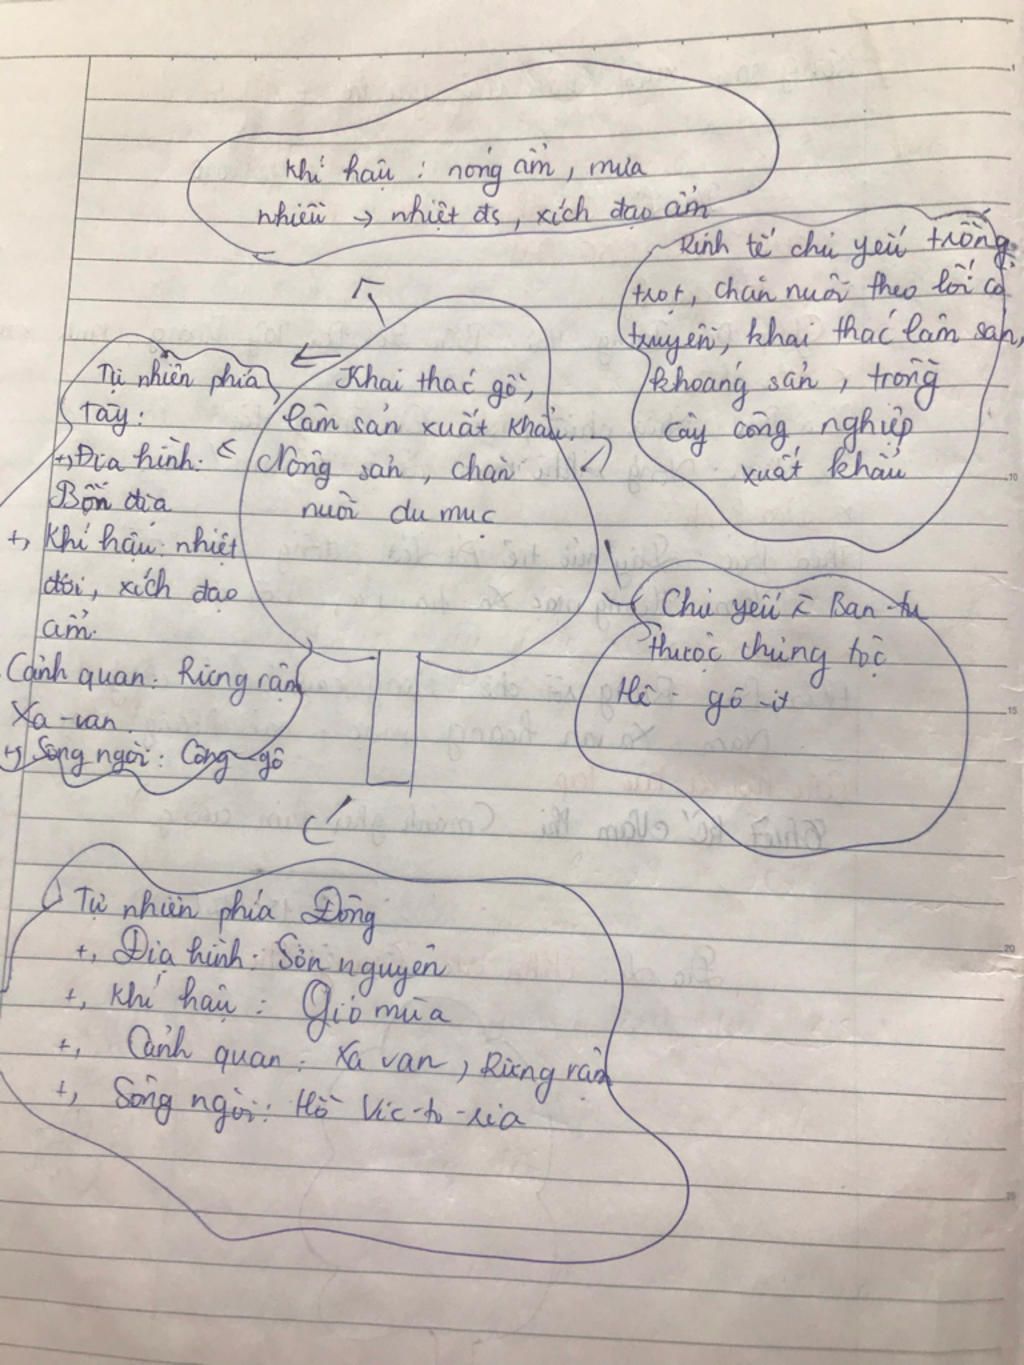 Khí hậu : nóng ẩm, mưa
nhiều → nhiệt đs, xích đạo ẩm
Kinh tế chủ yếu trồng
trọt, chăn nuôi theo lối cổ
truyền, khai thác lâm sản,
khoáng sản, trồng
cây công nghiệp
xuất khẩu
Tự nhiên phía
Tây:
+, Địa hình:
Bồn địa
+, Khí hậu: nhiệt
đới, xích đạo
ẩm.
Cảnh quan: Rừng rậm
Xa-van.
+, Sông ngòi: Công-gô
Khai thác gỗ,
lâm sản xuất khẩu.
Nông sản, chăn
nuôi du mục
Chủ yếu Ban-tu
thuộc chủng tộc
Nê-gô-it
Tự nhiên phía Đông
+, Địa hình: Sơn nguyên
+, Khí hậu : Gió mùa
+, Cảnh quan: Xa van, Rừng rậm
+, Sông ngòi: Hồ Vic-to-ria